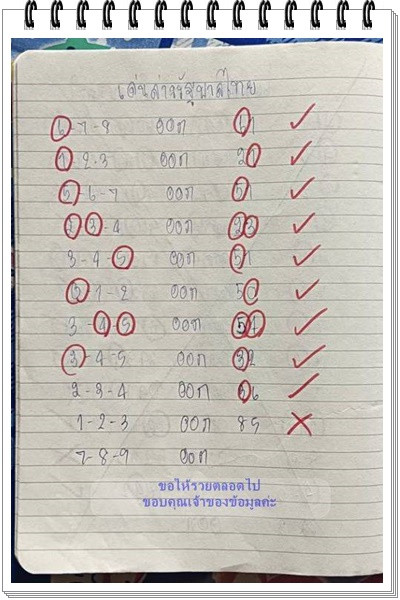 เด่นล่างรัฐบาลไทย
6-7-8 ออก 61 ✓
1-2-3 ออก 21 ✓
5-6-7 ออก 51 ✓
2-3-4 ออก 23 ✓
3-4-5 ออก 51 ✓
0-1-2 ออก 50 ✓
3-4-5 ออก 54 ✓
3-4-5 ออก 32 ✓
2-3-4 ออก 36 ✓
1-2-3 ออก 85 ✗
7-8-9 ออก
ขอให้รวยตลอดไป
ขอบคุณเจ้าของข้อมูลค่ะ